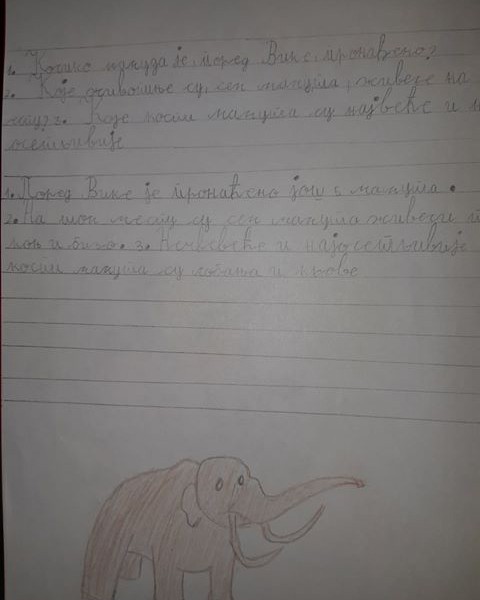 1. Колико мамута је, поред Вике, пронађено?
2. Које животиње су, сем мамута, живеле на
месту? 3. Које кости мамута су највеће и н
осетљивије
1. Поред Вике је пронађено још 5 мамута.
2. На том месту су сем мамута живели и
коњ и бизо. 3. Највеће и најосетљивије
кости мамута су лобања и кљове